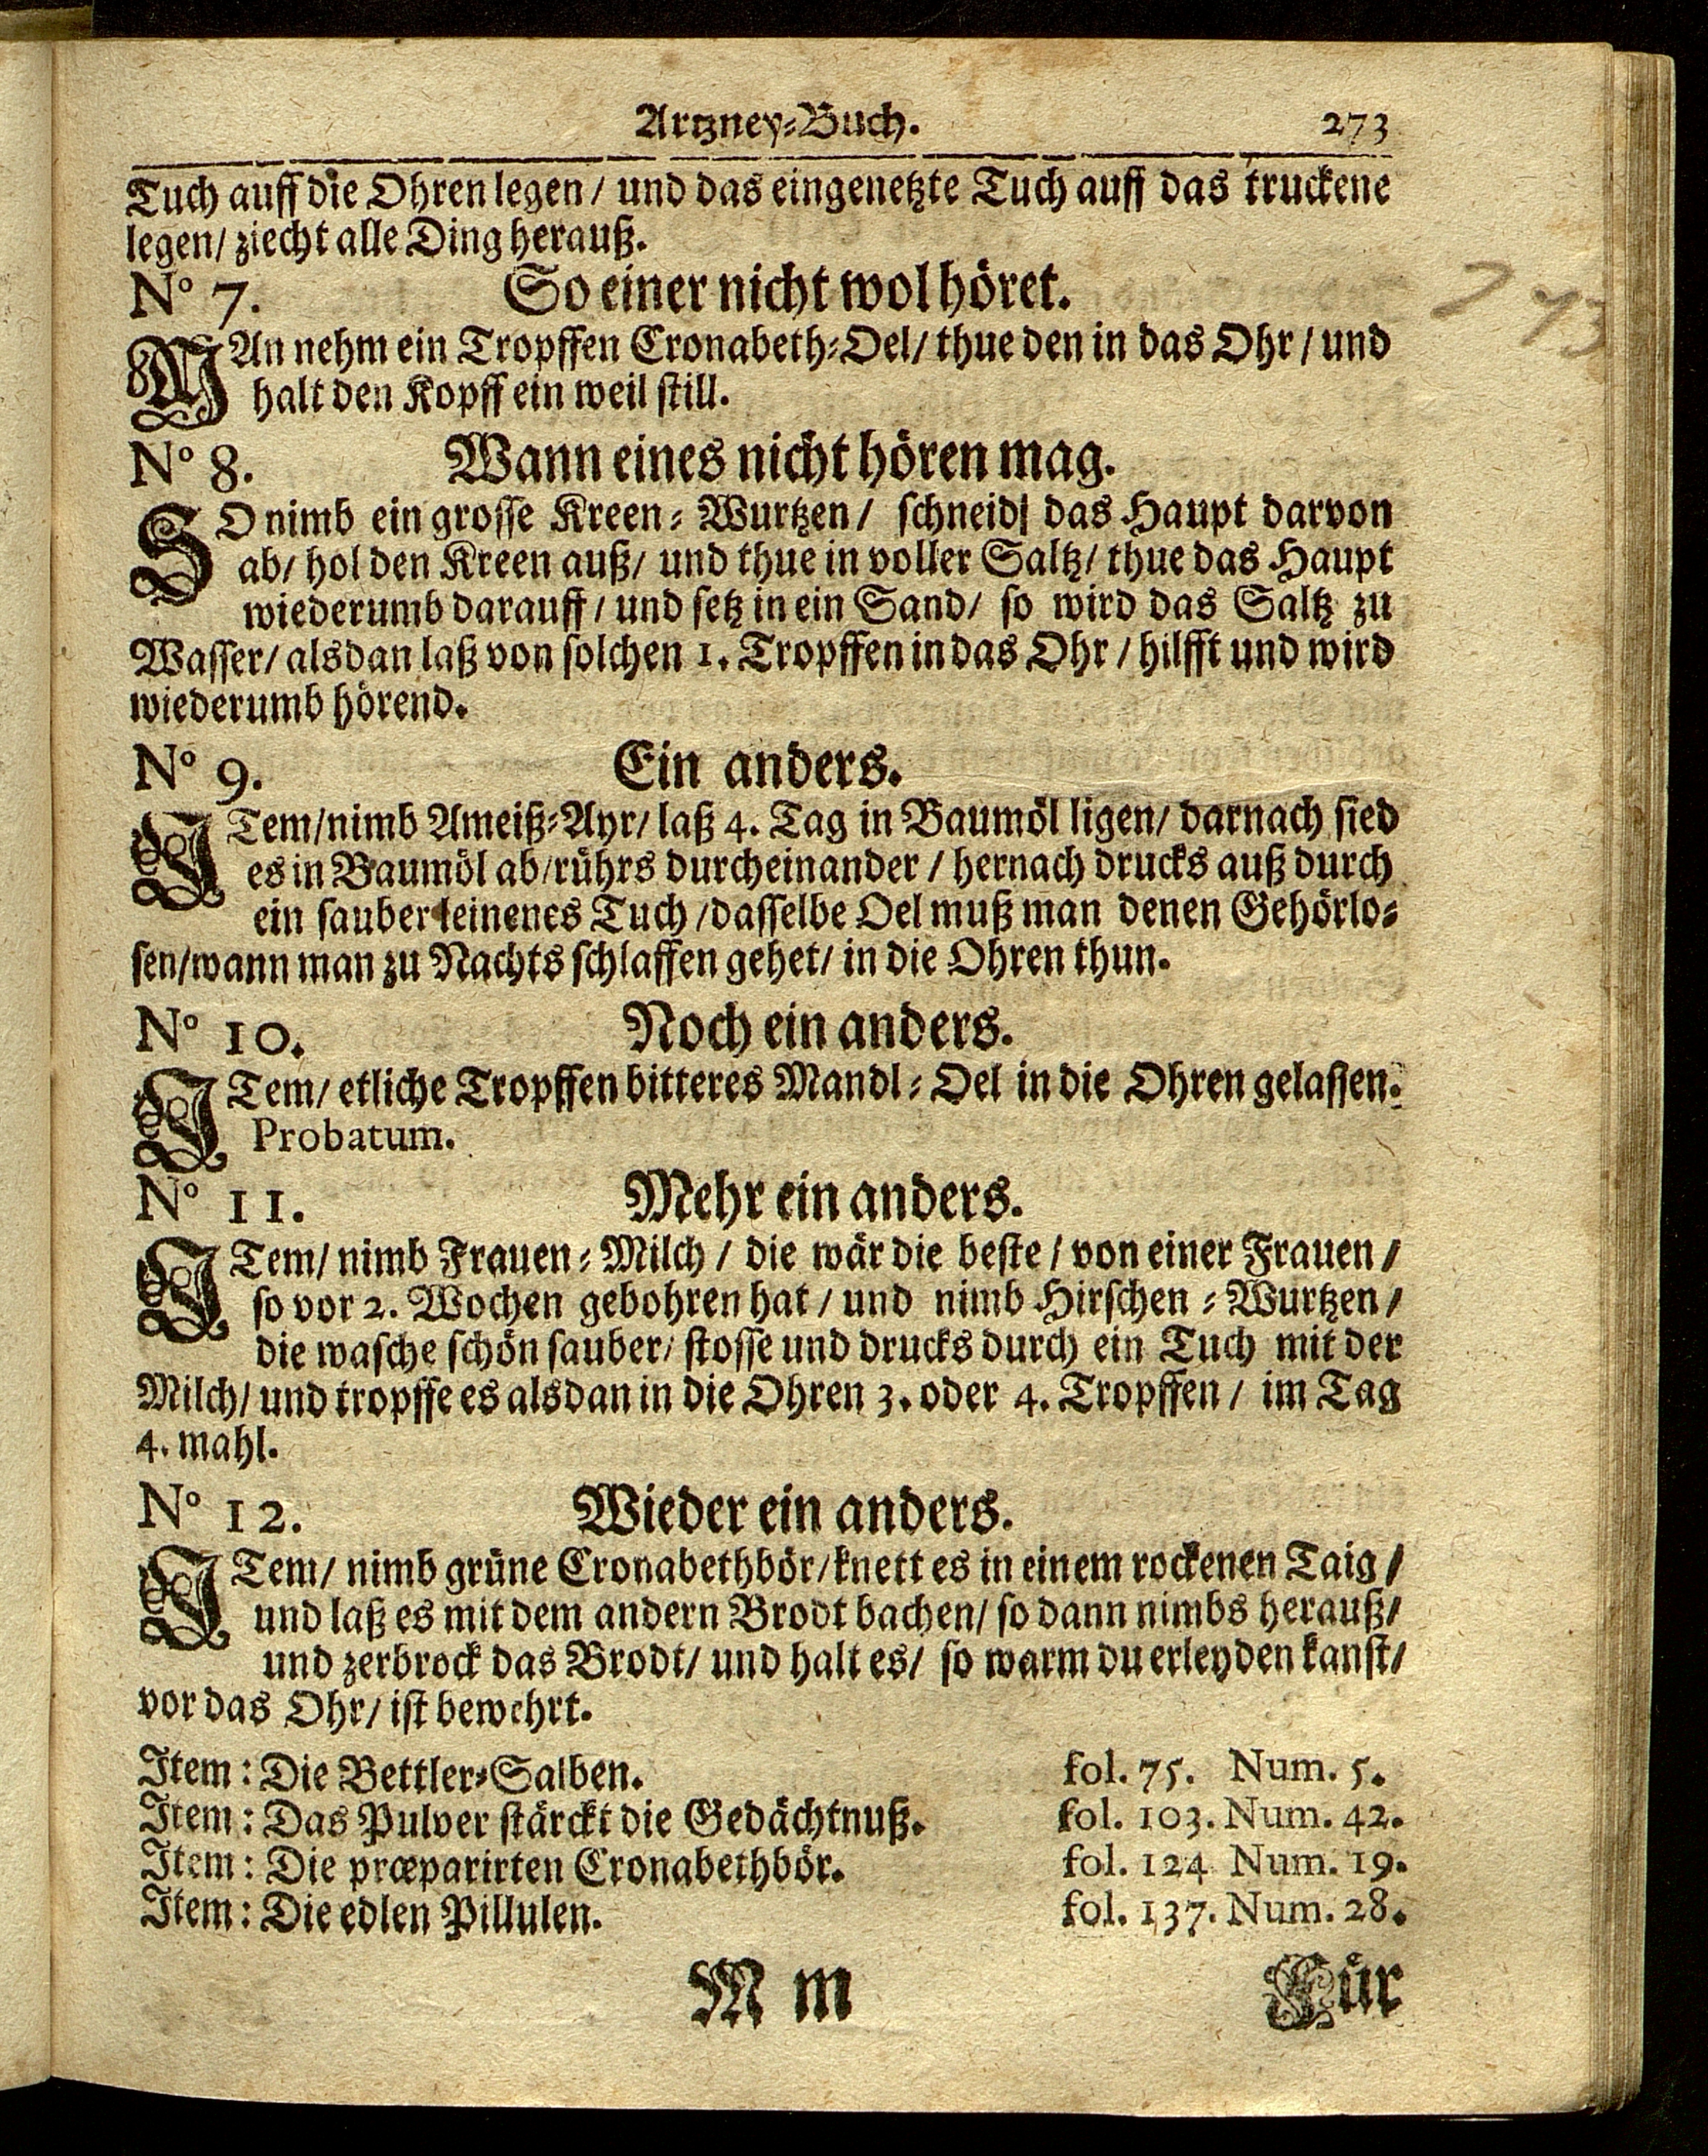 Artzney-Buch. 273
Tuch auff die Ohren legen / und das eingenetzte Tuch auff das truckene
legen / ziecht alle Ding herauß.
No 7. So einer nicht wol höret.
MAn nehm ein Tropffen Cronabeth-Oel / thue den in das Ohr / und
halt den Kopff ein weil still.
No 8. Wann eines nicht hören mag.
SO nimb ein grosse Kreen-Wurtzen / schneid das Haupt darvon
ab / hol den Kreen auß / und thue in voller Saltz / thue das Haupt
wiederumb darauff / und setz in ein Sand / so wird das Saltz zu
Wasser / alsdan laß von solchen 1. Tropffen in das Ohr / hilfft und wird
wiederumb hörend.
No 9. Ein anders.
ITem / nimb Ameiß-Ayr / laß 4. Tag in Baumöl ligen / darnach sied
es in Baumöl ab / rührs durcheinander / hernach drucks auß durch
ein sauber leinenes Tuch / dasselbe Oel muß man denen Gehörlo-
sen / wann man zu Nachts schlaffen gehet / in die Ohren thun.
No 10. Noch ein anders.
ITem / etliche Tropffen bitteres Mandl-Oel in die Ohren gelassen.
Probatum.
No 11. Mehr ein anders.
ITem / nimb Frauen-Milch / die wär die beste / von einer Frauen /
so vor 2. Wochen gebohren hat / und nimb Hirschen-Wurtzen /
die wasche schön sauber / stosse und drucks durch ein Tuch mit der
Milch / und tropffe es alsdan in die Ohren 3. oder 4. Tropffen / im Tag
4. mahl.
No 12. Wieder ein anders.
ITem / nimb grüne Cronabethbör / knett es in einem rockenen Taig /
und laß es mit dem andern Brodt bachen / so dann nimbs herauß /
und zerbrock das Brodt / und halt es / so warm du erleyden kanst /
vor das Ohr / ist bewehrt.
Item: Die Bettler-Salben. fol. 75. Num. 5.
Item: Das Pulver stärckt die Gedächtnuß. fol. 103. Num. 42.
Item: Die præparirten Cronabethbör. fol. 124 Num. 19.
Item: Die edlen Pillulen. fol. 137. Num. 28.
M m Für